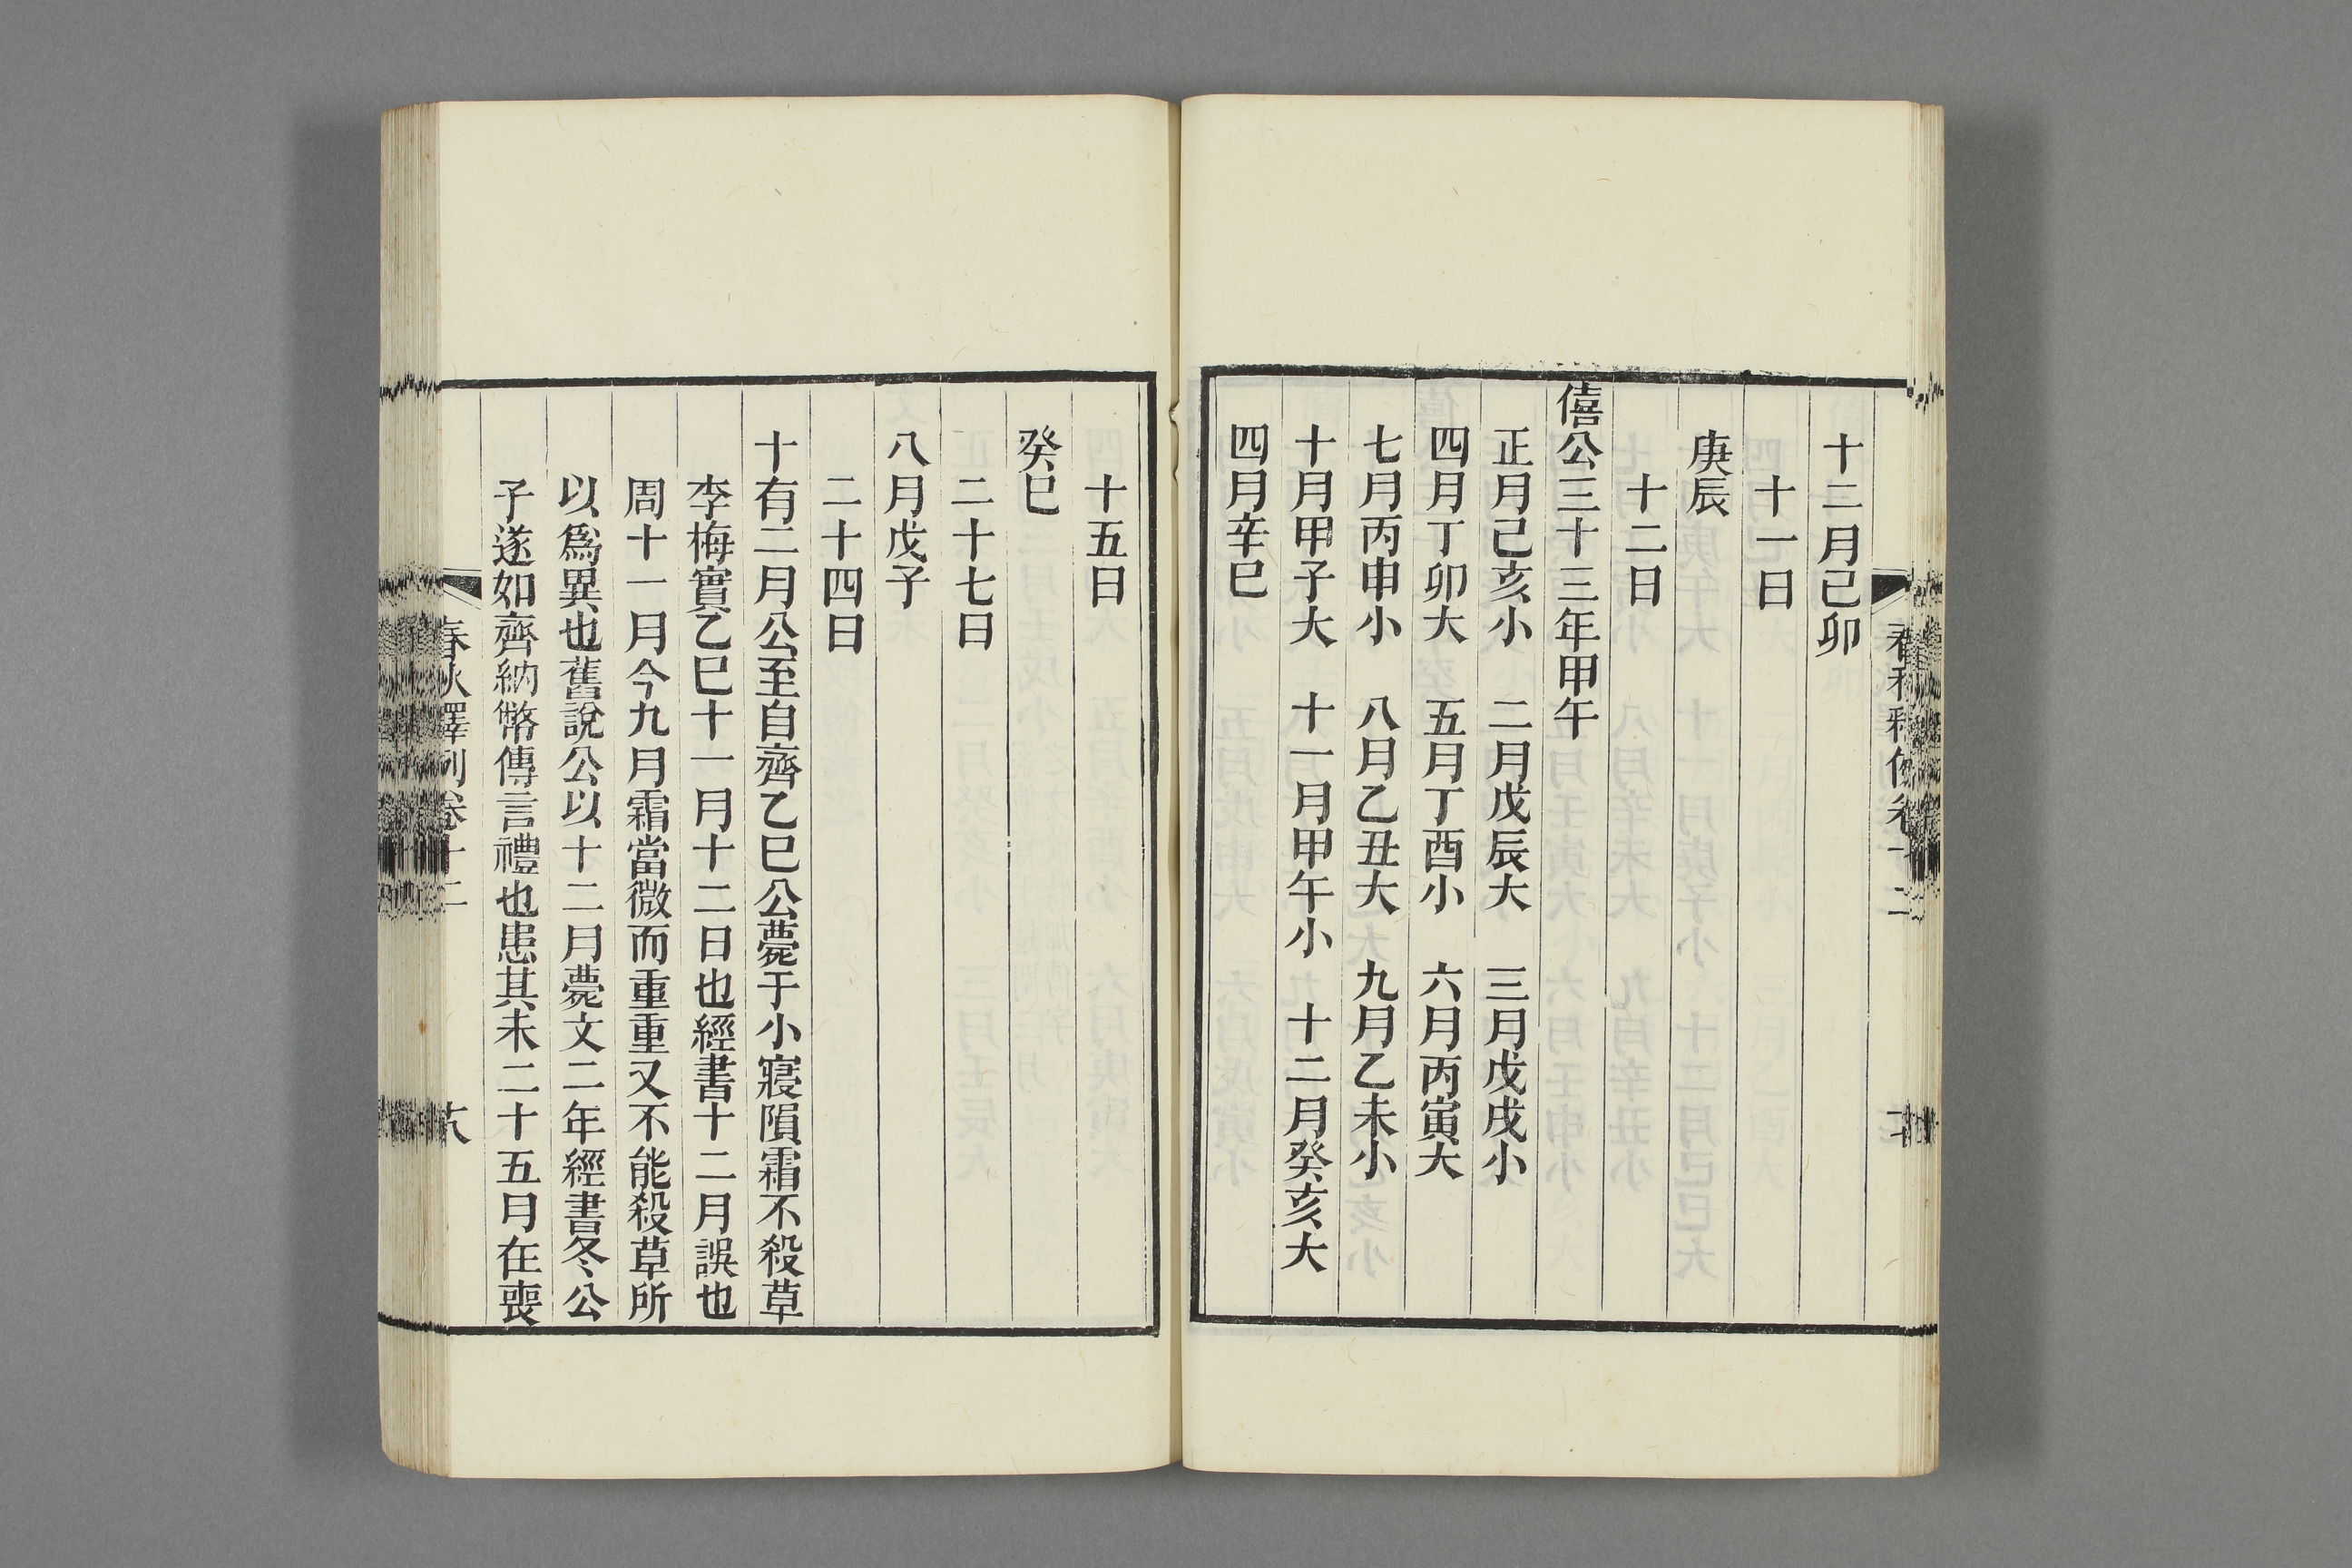 十二月己卯
十一日
庚辰
十二日
僖公三十三年甲午
正月己亥小　二月戊辰大　三月戊戌小
四月丁卯大　五月丁酉小　六月丙寅大
七月丙申小　八月乙丑大　九月乙未小
十月甲子大　十一月甲午小　十二月癸亥大
四月辛巳
十五日
癸巳
二十七日
八月戊子
二十四日
十有二月公至自齊乙巳公薨于小寢隕霜不殺草
李梅實乙巳十一月十二日也經書十二月誤也
周十一月今九月霜當微而重重又不能殺草所
以爲異也舊說公以十二月薨文二年經書冬公
子遂如齊納幣傳言禮也患其未二十五月在喪
春秋釋例卷十二